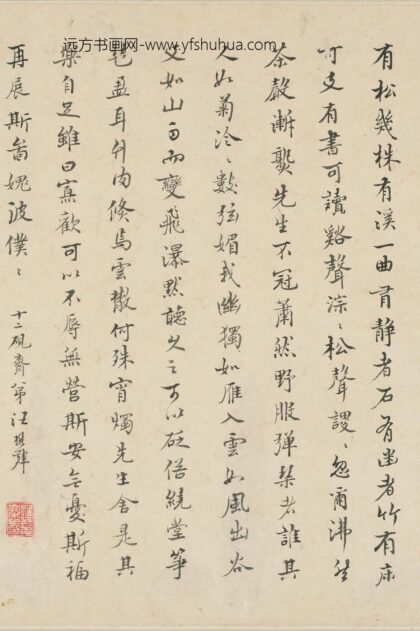 远方书画网-www.yfshuhua.com
有松幾株有溪一曲有靜者石有幽者竹有床
可支有書可讀谿聲淙〻松聲謖〻忽爾沸然
茶聲漸熟先生不冠蕭然野服彈琹者誰其
人如菊泠〻數弦媚我幽獨如雁入雲如風出谷
又如山雨而變飛瀑默聽久之可以砭俗繞堂箏
琶盈耳絲肉倏焉雲散何殊宵燭先生舍是其
樂自足雖曰寡歡可以不辱無營斯安無憂斯福
再展斯啚媿彼僕〻
十二硯齋弟汪